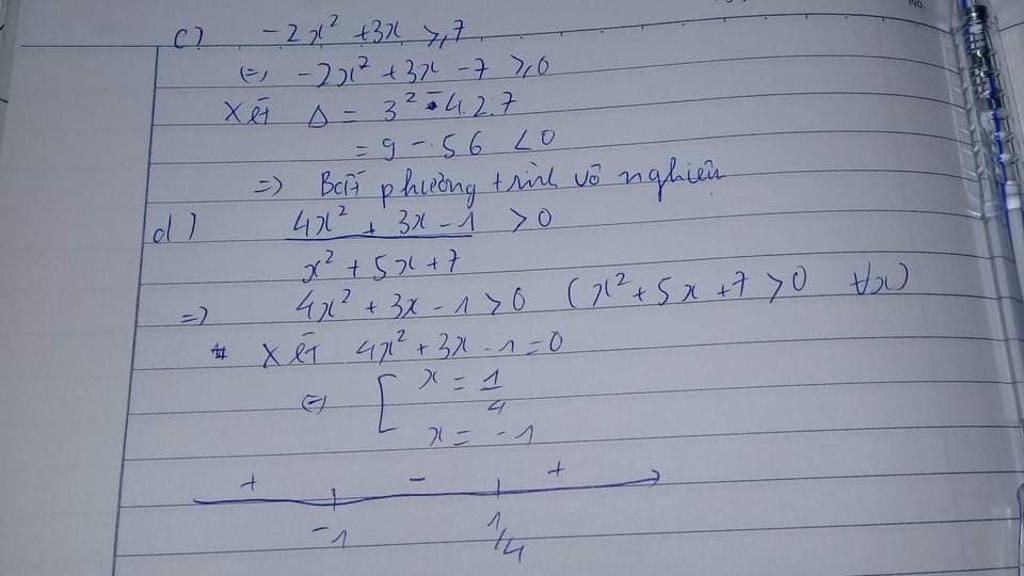 c) -2x² + 3x ≥ 7
(=) -2x² + 3x - 7 ≥ 0
Xét Δ = 3² - 4.2.7
= 9 - 56 < 0
=) Bất phương trình vô nghiệm
d) 4x² + 3x - 1 > 0
x² + 5x + 7
=) 4x² + 3x - 1 > 0 (x² + 5x + 7 > 0 ∀x)
* Xét 4x² + 3x - 1 = 0
(=) [ x = 1/4
x = -1
+ - +
-1 1/4